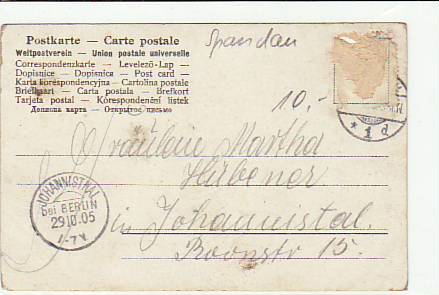 Postkarte – Carte postale
Weltpostverein – Union postale universelle
Correspondenzkarte – Levelező-Lap –
Dopisnice – Dopisnica – Post card –
Karta korespondencyjna – Cartolina postale
Briefkaart – Carta postala – Brefkort
Tarjeta postal – Kórespondenèni listek
Дописна карта – Открытое письмо
Spandau
10.-
* 1 d
Fräulein Martha
Hübener
in Johannistal.
Roonstr 15.
JOHANNISTHAL
bei BERLIN
29.10.05